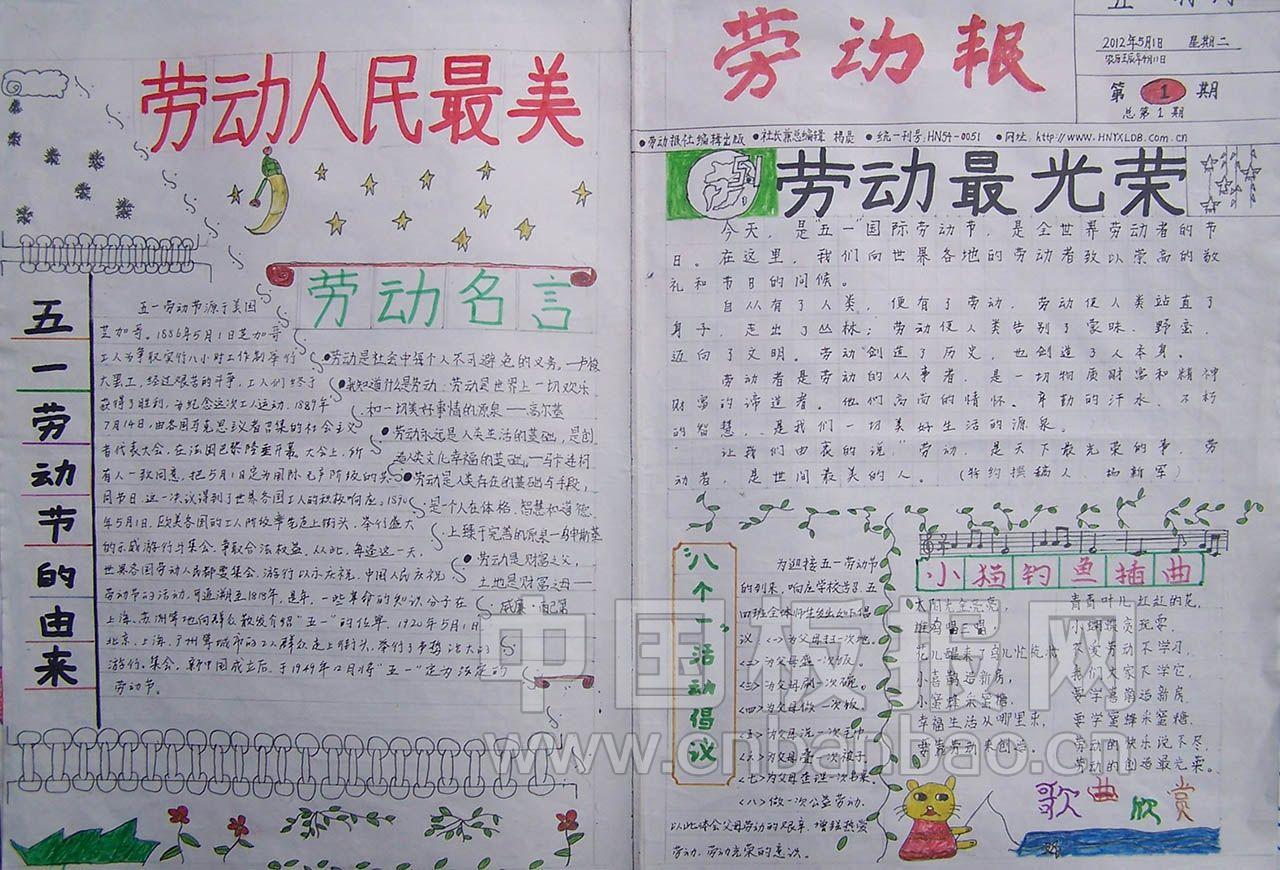 劳动人民最美
劳动名言
五一劳动节的由来
五一劳动节源于美国
芝加哥。1886年5月1日芝加哥
工人为争取实行八小时工作制举行
大罢工,经过艰苦的斗争,工人们终于
获得了胜利。为纪念这次工人运动,1889年
7月14日,由各国马克思主义者召集的社会主义
者代表大会,在法国巴黎隆重开幕。大会上,所
有人一致同意,把5月1日定为国际无产阶级的共
同节日。这一决议得到了世界各国工人的积极响应。1890
年5月1日,欧美各国的工人阶级率先走上街头,举行盛大
的示威游行与集会,争取合法权益。从此,每逢这一天,
世界各国劳动人民都要集会、游行以示庆祝。中国人民庆祝
劳动节的活动,可追溯至1918年。是年,一些革命的知识分子在
上海、苏州等地向群众散发介绍"五一"的传单。1920年5月1日
北京、上海、广州等城市的工人群众走上街头,举行了声势浩大的
游行、集会。新中国成立后,于1949年12月将"五一"定为法定的
劳动节。
●劳动是社会中每个人不可避免的义务。—卢梭
●我知道什么是劳动:劳动是世界上一切欢乐
和一切美好事情的源泉——高尔基
●劳动永远是人类生活的基础,是创
造人类文化幸福的基础。—马卡连柯
●劳动是人类存在的基础与手段,
是一个人在体格、智慧和道德
上臻于完善的源泉—乌申斯基
●劳动是财富之父,
土地是财富之母——
威廉·配第
劳动报
2012年5月1日 星期二
农历壬辰年4月11日
第1期
总第1期
●劳动报社编辑出版 ●社长兼总编辑 杨晨 ●统一刊号:HN54-0051 ●网址:http://www.HNYXLDB.com.cn
劳动最光荣
今天,是"五一"国际劳动节,是全世界劳动者的节
日。在这里,我们向世界各地的劳动者致以崇高的敬
礼和节日的问候。
自从有了人类,便有了劳动。劳动使人类站直了
身子,走出了丛林;劳动使人类告别了蒙昧、野蛮,
迈向了文明。劳动创造了历史,也创造了人本身。
劳动者是劳动的从事者,是一切物质财富和精神
财富的缔造者。他们高尚的情怀、辛勤的汗水、不朽
的智慧,是我们一切美好生活的源泉。
让我们由衷的说"劳动,是天下最光荣的事,劳
动者,是世间最美的人。(特约撰稿人 杨新军)
"八个一"活动倡议
为迎接五一劳动节
的到来,响应学校号召,五
四班全体师生发出如下倡
议:<一>为父母扫一次地。
<二>为父母叠一次被。
<三>为父母刷一次碗。
<四>为父母做一次饭。
<五>为父母洗一次
<六>为父母叠一次被子。
<七>为父母
<八>做一次公益劳动。
以此体会父母劳动的艰辛,增强热爱
劳动、劳动光荣的意识。
小猫钓鱼插曲
太阳光金亮亮,
雄鸡唱三唱
花儿醒来了鸟儿忙梳妆
小喜鹊造新房,
小蜜蜂采蜜糖,
幸福生活从哪里来,
要靠劳动来创造。
青青叶儿红红的花,
小蝴蝶贪玩耍,
不爱劳动不学习,
我们大家不学它,
要学喜鹊造新房
要学蜜蜂采蜜糖,
劳动的快乐说不尽,
劳动的创造最光荣。
歌曲欣赏
中国板报网
www.cnbanbao.cn